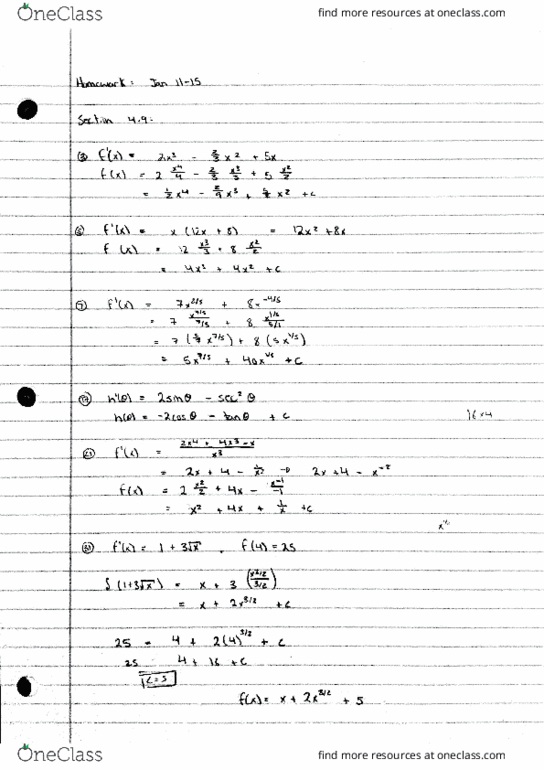 OneClass
find more resources at oneclass.com
Homework: Jan 11-15
Section 4.9:
f'(x) = 2x³ - 2/3 x² + 5x
f(x) = 2 x⁴/4 - 2/3 x³/3 + 5 x²/2
= 1/2 x⁴ - 2/9 x³ + 5/2 x² + C
f'(x) = x (12x + 8) = 12x² + 8x
f(x) = 12 x³/3 + 8 x²/2
= 4x³ + 4x² + C
f'(x) = 7x^2/5 + 8x^-4/5
= 7 x^7/5 / 7/5 + 8 x^1/5 / 1/5
= 7 (5/7 x^7/5) + 8 (5x^1/5)
= 5x^7/5 + 40x^1/5 + C
h'(θ) = 2sinθ - sec²θ
h(θ) = -2cosθ - tanθ + C
16x4
f'(x) = 2x⁴ + 4x³ - x / x³
= 2x + 4 - 1/x² → 2x + 4 - x⁻²
f(x) = 2 x²/2 + 4x - x⁻¹/-1
= x² + 4x + 1/x + C
f'(x) = 1 + 3√x , f(4) = 25
∫ (1+3√x) = x + 3 (x^3/2 / 3/2)
= x + 2x^3/2 + C
25 = 4 + 2(4)^3/2 + C
25 4 + 16 + C
C = 5
f(x) = x + 2x^3/2 + 5
OneClass
find more resources at oneclass.com